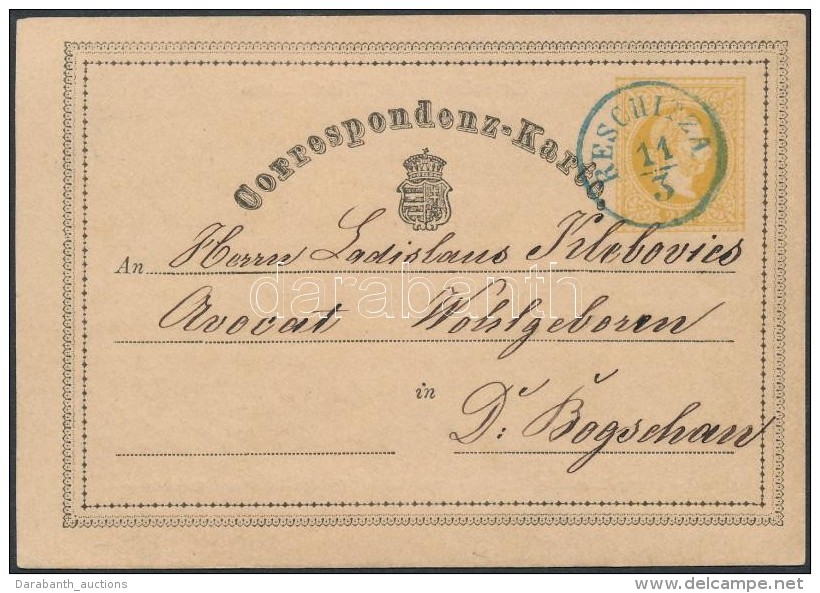 Correspondenz-Karte.
RESCHITZA
11/3
An Herrn Ladislaus Klebovics
Avocat Wohlgeboren
in
D: Bogschan
darabanth
Darabanth_auctions
delcampe.net